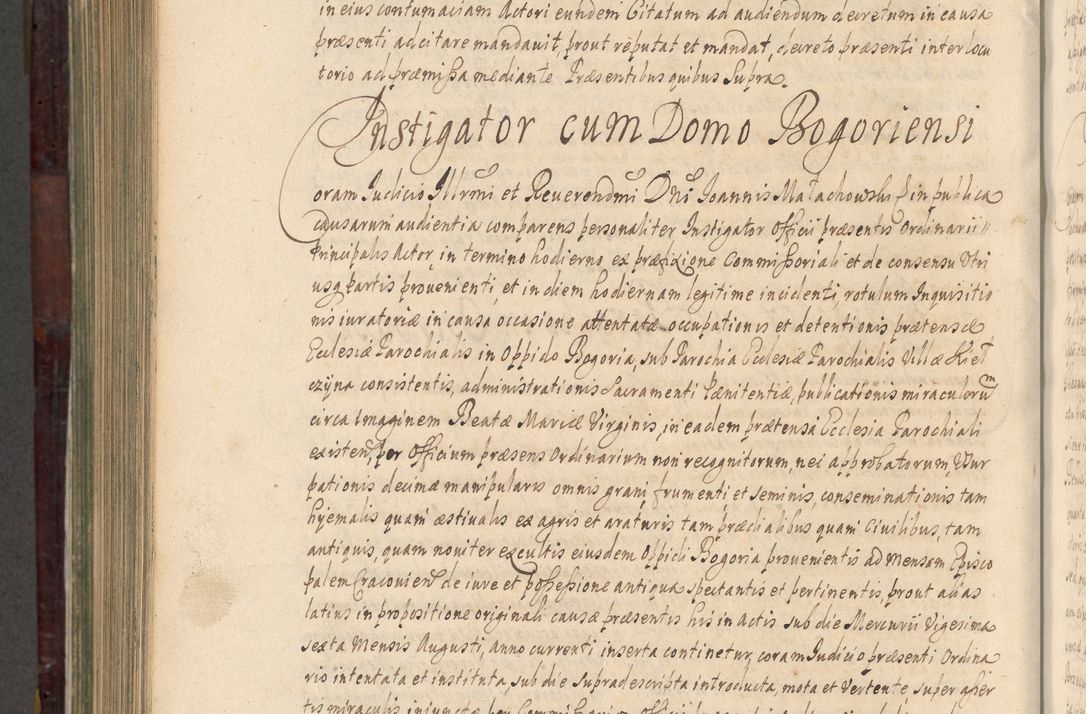 in eius contumaciam Actori eundem Citatum ad audiendum decretum in causa
præsenti adcitare mandauit, prout reputat et mandat, decreto præsenti interlocu
torio ad præmissa mediante Præsentibus quibus Supra.
Instigator cum Domo Bogoriensi
Coram Iudicio Illrmi et Reuerendmi Dni Ioannis Małachowski &c in publica
causarum audientia comparens personaliter Instigator Officii præsentis Ordinarii
Principalis Actor, in termino hodierno ex præfixione Commissoriali et de consensu Utri
usq Partis prouenienti, et in diem hodiernam legitime incidenti, rotulum Inquisitio
nis iuratoriæ in causa occasione attentatæ occupationis et detentionis prætensæ
Ecclesiæ Parochialis in Oppido Bogoria, sub Parochia Ecclesiæ Parochialis Villæ Kieł
czyna consistentis, administrationis Sacramenti Pænitentiæ, publicationis miraculorum
circa Imaginem Beatæ Mariæ Virginis, in eadem prætensa Ecclesia Parochiali
existen, per Officium præsens Ordinarium non recognitorum, nec approbatorum, Usur
pationis decimæ manipularis omnis grani frumenti et seminis, conseminationis tam
hyemalis quam æstiualis ex agris et araturis tam prædialibus quam Ciuilibus, tam
antiquis, quam nouiter excultis eiusdem Oppidi Bogoria prouenientis ad Mensam Episco
palem Cracovien de iure et possessione antiqua spectantis et pertinentis, prout alias
latius in propositione originali causæ præsentis his in Actis sub die Mercurii Vigesima
sexta Mensis Augusti, anno currenti inserta continetur, coram Iudicio præsenti Ordina
rio intentata et instituta, sub die supradescripta introducta, mota et vertente super asser
tis miraculis